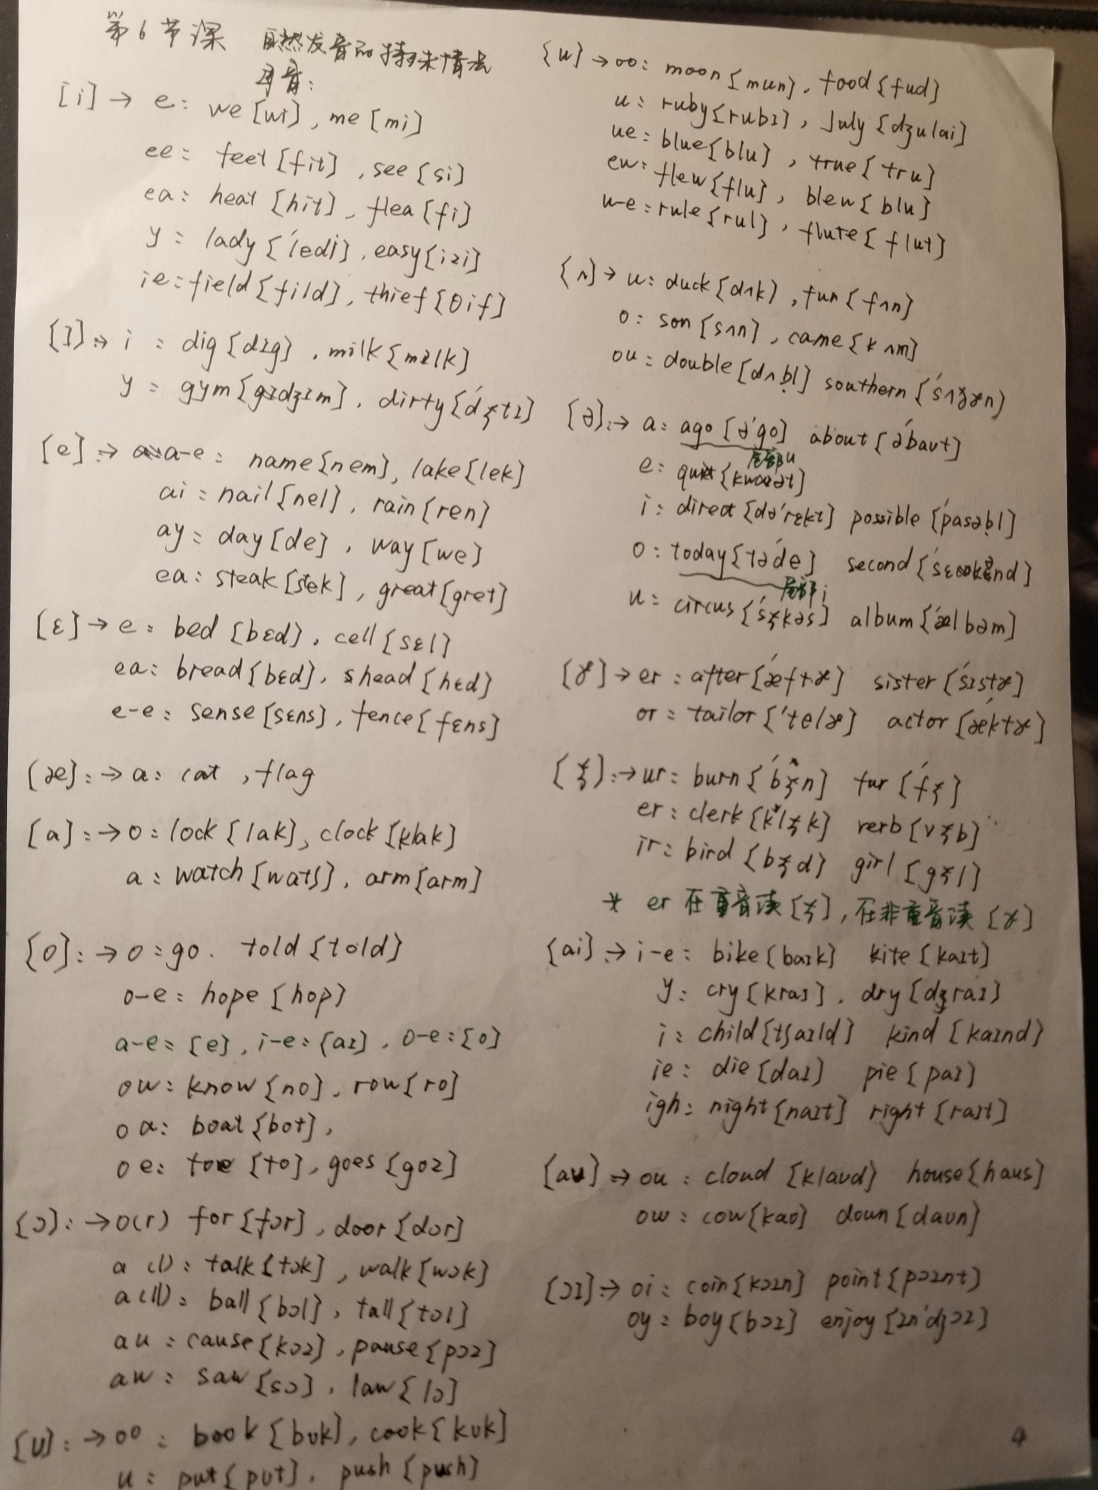 第6节课 自然发音的特殊情况
母音:
[i] → e: we [wi], me [mi]
ee: feet [fit], see [si]
ea: heat [hit], flea [fi]
y: lady ['ledi], easy [izi]
ie: field [fild], thief [θif]
[I]: → i : dig [dIg], milk [mIlk]
y : gym [gIdʒIm], dirty ['dɝtI]
[e]: → a-e: name [nem], lake [lek]
ai: nail [nel], rain [ren]
ay: day [de], way [we]
ea: steak [stek], great [gret]
[ɛ] → e: bed [bɛd], cell [sɛl]
ea: bread [bɛd], shead [hɛd]
e-e: sense [sɛns], fence [fɛns]
[æ]: → a: cat, flag
[a]: → o: lock [lak], clock [klak]
a: watch [watʃ], arm [arm]
[o]: → o: go. told [told]
o-e: hope [hop]
a-e: [e], i-e: [aI], o-e: [o]
ow: know [no], row [ro]
oa: boat [bot],
oe: toe [to], goes [goz]
[ɔ]: → o(r) for [fɔr], door [dɔr]
a(l): talk [tɔk], walk [wɔk]
a(ll): ball [bɔl], tall [tɔl]
au: cause [kɔz], pause [pɔz]
aw: saw [sɔ], law [lɔ]
[ʊ]: → oo: book [bʊk], cook [kʊk]
u: put [pʊt], push [pʊsh]
[u] → oo: moon [mun], food [fud]
u: ruby [rubI], July [dʒulai]
ue: blue [blu], true [tru]
ew: flew [flu], blew [blu]
u-e: rule [rul], flute [flut]
[ʌ] → u: duck [dʌk], fun [fʌn]
o: son [sʌn], came [kʌm]
ou: double [dʌbl] southern ['sʌðɚn]
[ə]: → a: ago [ə'go] about [ə'baʊt]
尾部u
e: quiet
i: direct [də'rɛkt] possible ['pasəbl]
o: today [tə'de] second
尾部i
u: circus ['sɝkəs] album ['ælbəm]
[ɚ] → er: after ['æftɚ] sister ['sIstɚ]
or: tailor ['telɚ] actor ['æktɚ]
[ɝ]: → ur: burn ['bɝn] fur ['fɝ]
er: clerk [klɝk] verb [vɝb]
ir: bird [bɝd] girl [gɝl]
* er 在重音读 [ɝ], 在非重音读 [ɚ]
[ai]: → i-e: bike [baIk] kite [kaIt]
y: cry [kraI], dry [dʒraI]
i: child [tʃaIld] kind [kaInd]
ie: die [daI] pie [paI]
igh: night [naIt] right [raIt]
[aʊ] → ou: cloud [klaʊd] house [haʊs]
ow: cow [kaʊ] down [daʊn]
[ɔI]: → oi: coin [kɔIn] point [pɔInt]
oy: boy [bɔI] enjoy [In'dʒɔI]
4